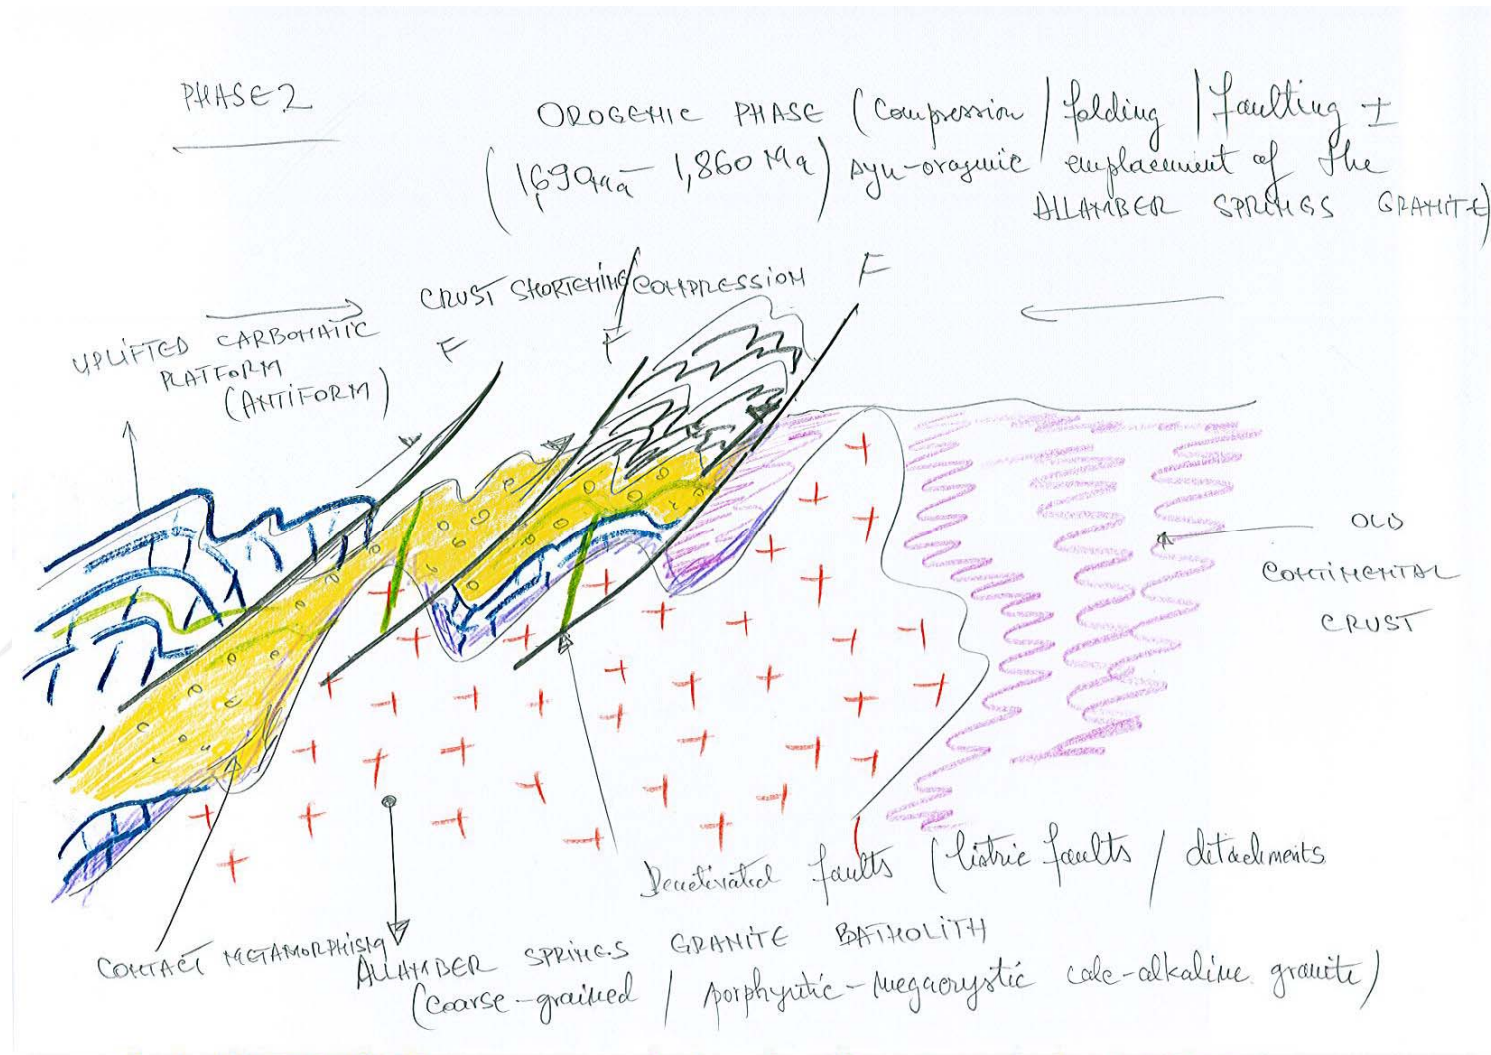 PHASE 2
OROGENIC PHASE (Compression / folding / faulting ±
(1,690Ma – 1,860 Ma) syn-orogenic emplacement of the
ALLAMBER SPRINGS GRANITE)
CRUST SHORTENING/COMPRESSION
F
F
F
UPLIFTED CARBONATIC
PLATFORM
(ANTIFORM)
OLD
CONTINENTAL
CRUST
Deactivated faults (listric faults / detachments
CONTACT METAMORPHISM
ALLAMBER SPRINGS GRANITE BATHOLITH
(coarse-grained / porphyritic-megacrystic calc-alkaline granite)